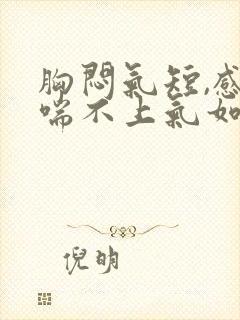 胸悶氣短,感
喘不上氣如
倪明